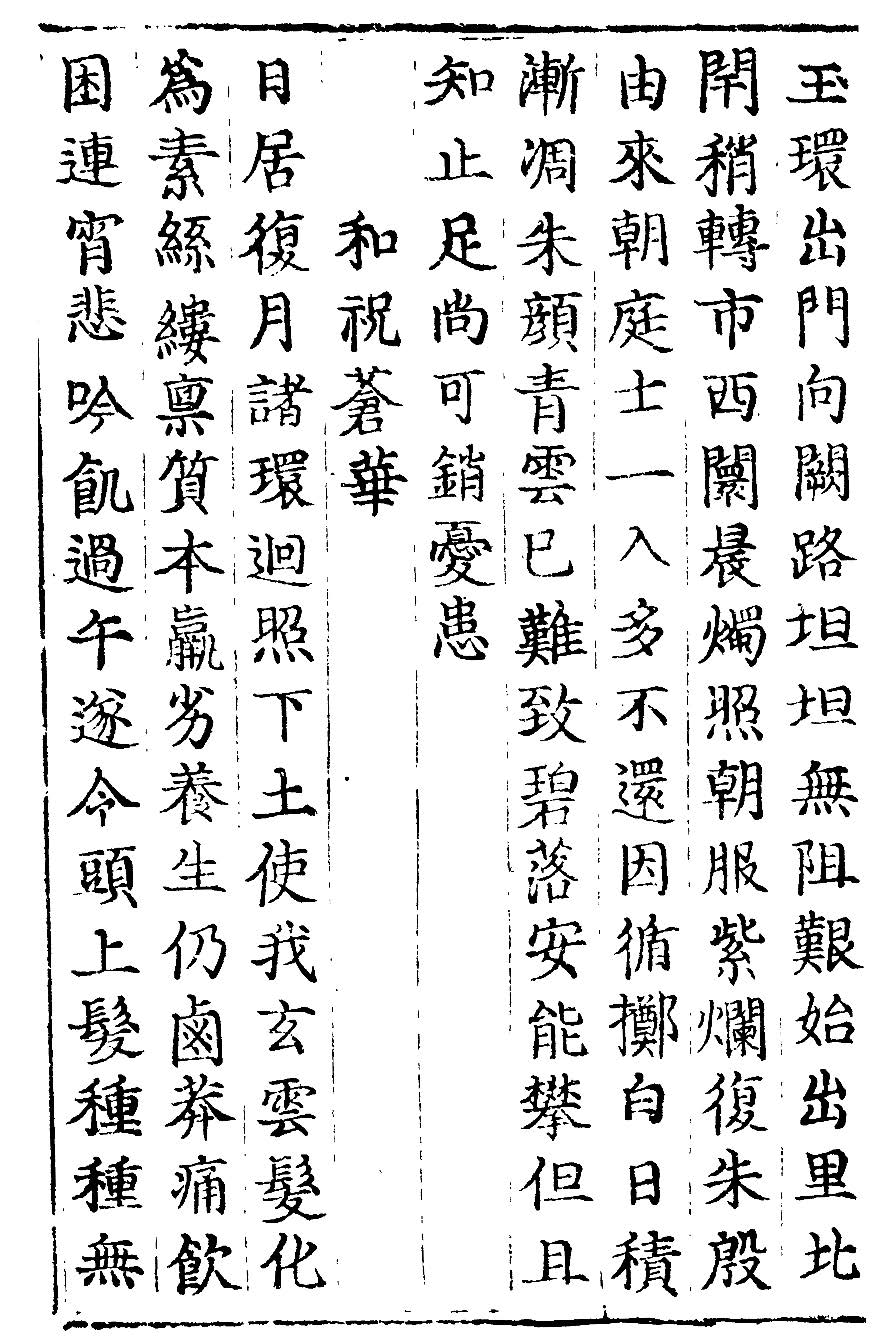 玉環出門向闕路坦坦無阻艱始出里北
閈稍轉市西闤晨燭照朝服紫爛復朱殷
由來朝庭士一入多不還因循擲白日積
漸凋朱顏青雲已難致碧落安能攀但且
知止足尚可銷憂患
和祝蒼華
日居復月諸環迴照下土使我玄雲髮化
為素絲縷禀質本羸劣養生仍鹵莽痛飲
困連宵悲吟飢過午遂今頭上髮種種無